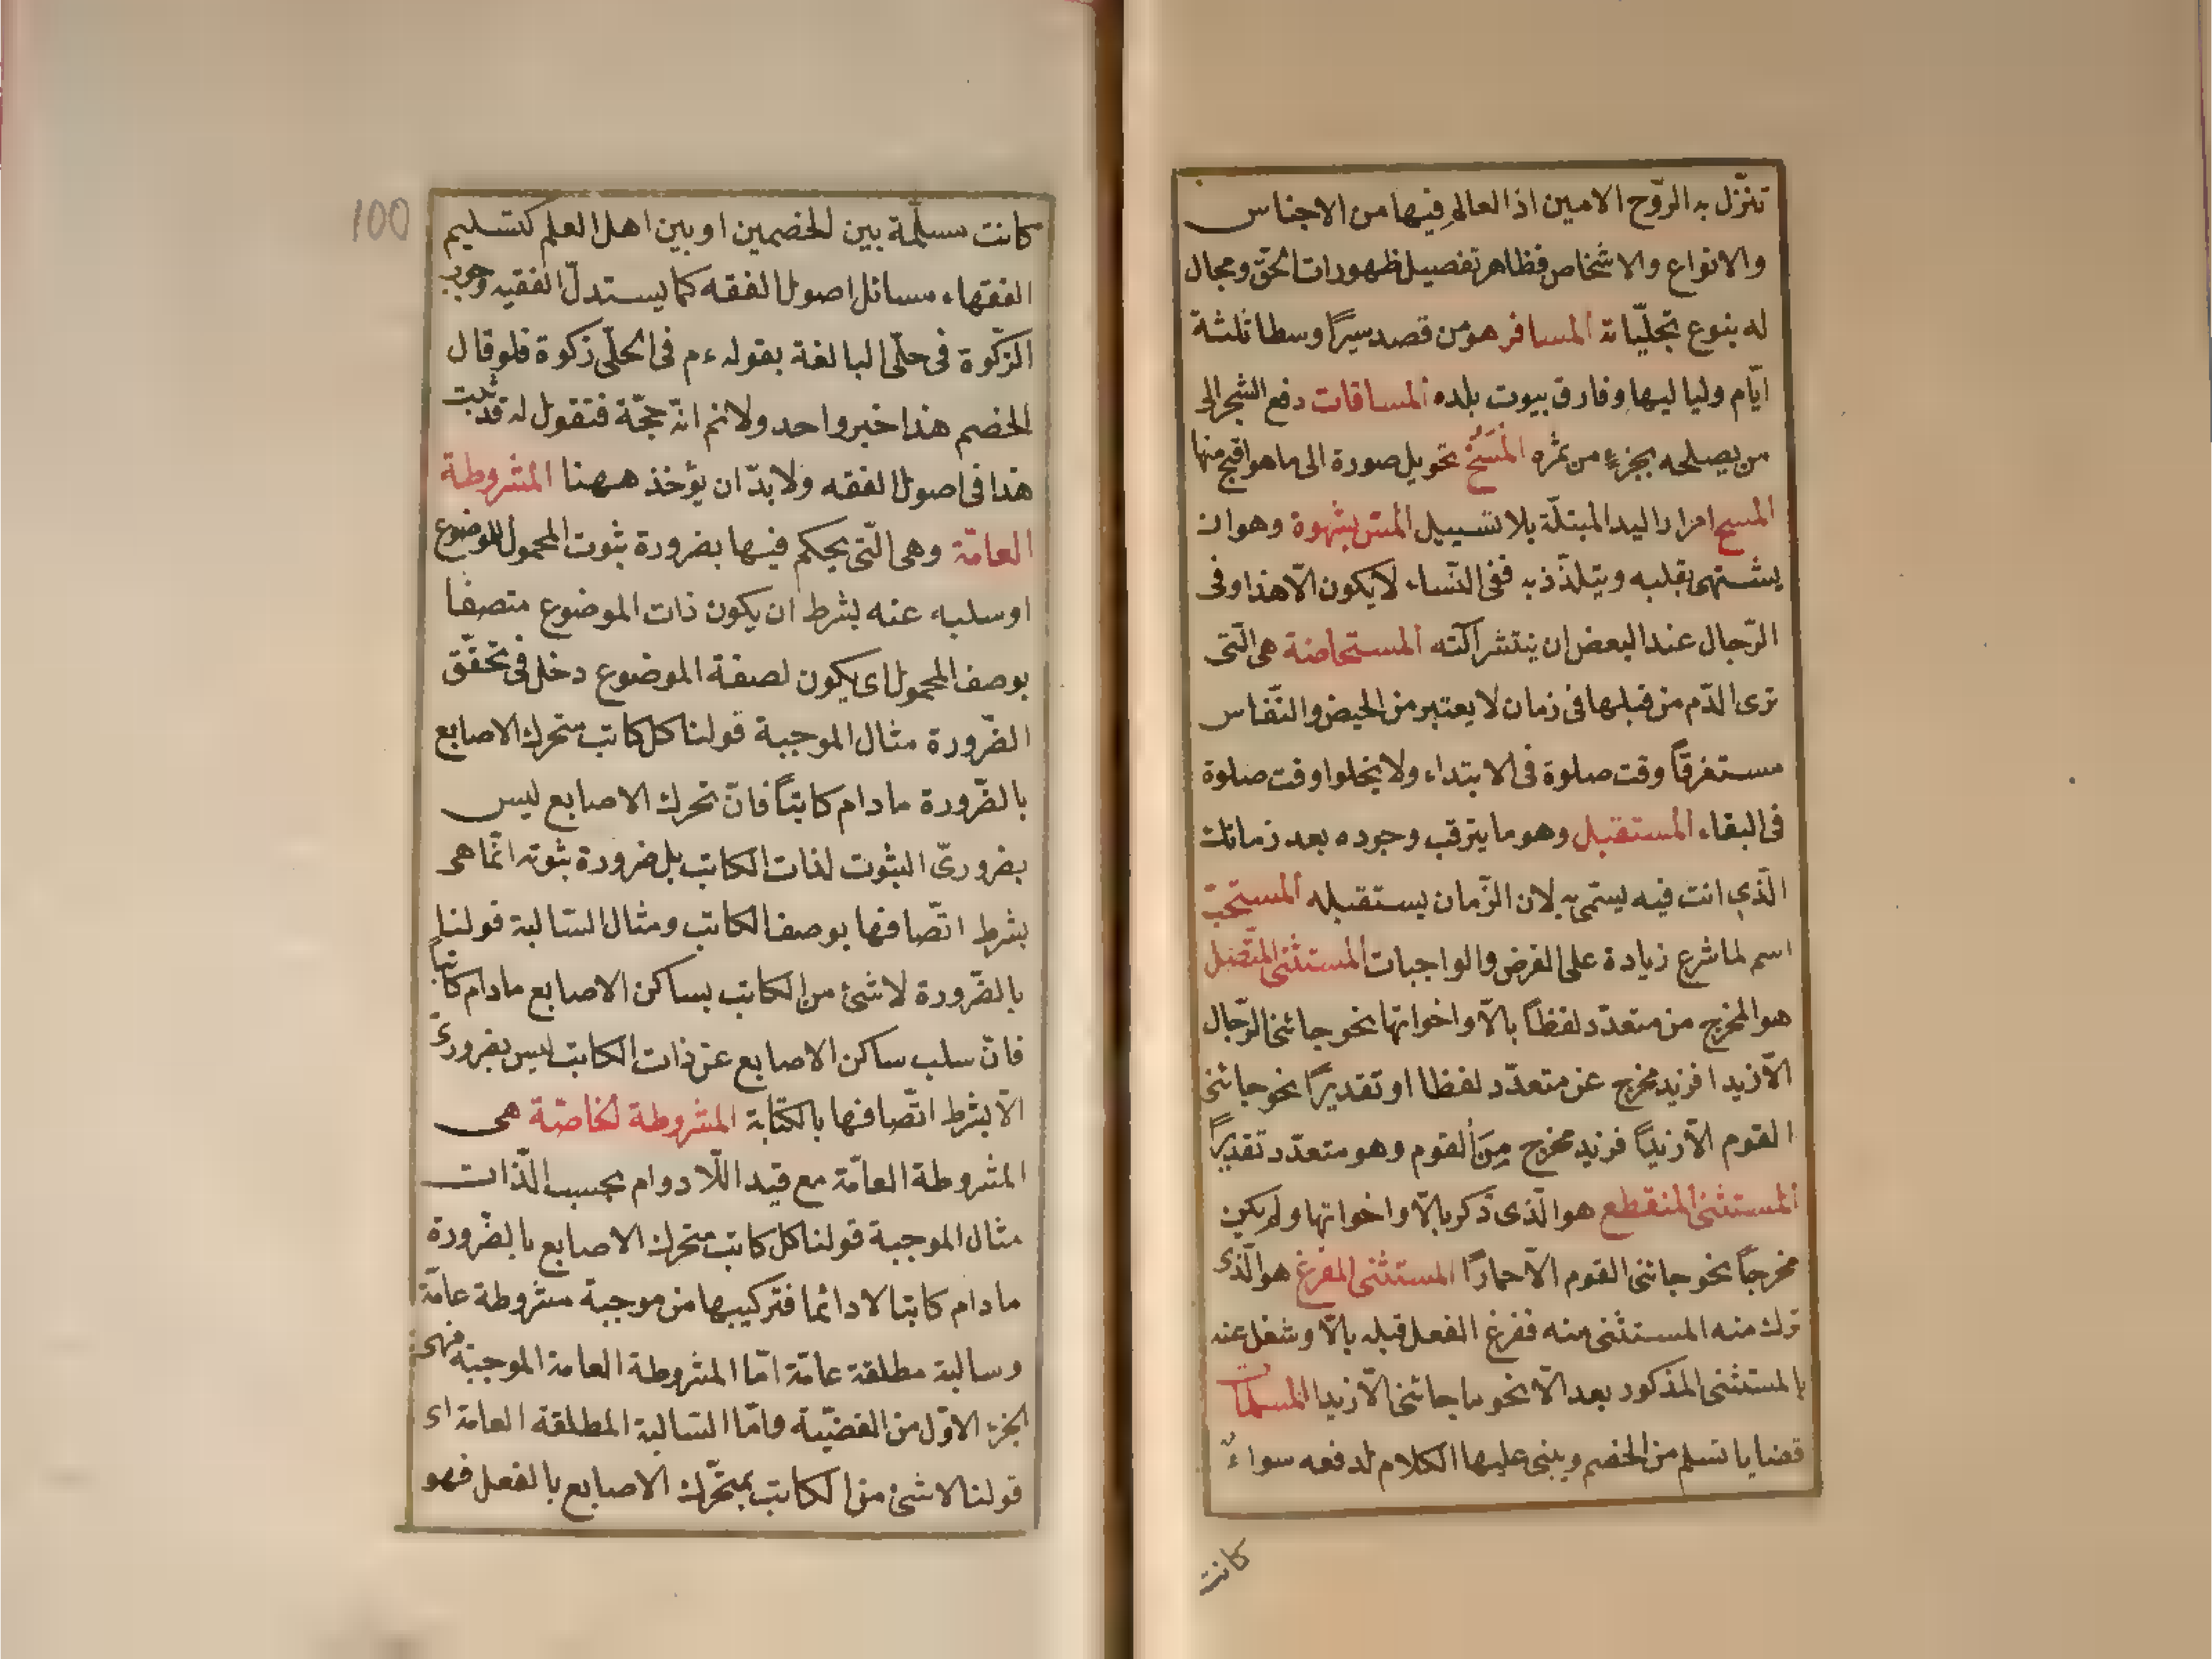 تنزّل به الرّوح الامين اذ العالم فيها من الاجناس
والانواع والاشخاص فظاهر تفصيل ظهورات الحقّ ومجال
له بنوع تجلّياته المسافر هو من قصد سيراً وسطا ثلثة
ايّام ولياليها وفارق بيوت بلده المساقات دفع الشجر الى
من يصلحه بجزء من ثمره المَسْخ تحويل صورة الى ما هو اقبح منها
المسح امرار اليد المبتلّة بلا تسييل المسّ بشهوة وهو ان
يشتهى بقلبه ويتلذّذ به ففى النّساء لا يكون الّا هذا وفى
الرّجال عند البعض ان ينتشر آلته المستحاضة هى الّتى
ترى الدّم من قبلها فى زمان لا يعتبر من الحيض والنّفاس
مستغرقاً وقت صلوة فى الابتداء ولا يخلوا وقت صلوة
فى البقاء المستقبل وهو ما يترقب وجوده بعد زمانك
الّذى انت فيه يسمّى به لان الزّمان يستقبله المستحبّ
اسم لما شرع زيادة على الفرض والواجبات المستثنى المتّصل
هو المخرج من متعدّد لفظاً بالّا واخواتها نحو جائنى الرّجال
الّا زيدا فزيد مخرج عن متعدّد لفظا او تقديراً نحو جائنى
القوم الّا زيداً فزيد مخرج مِنَ القوم وهو متعدّد تقديراً
المستثنى المنقطع هو الّذى ذكر بالّا واخواتها ولم يكن
مخرجاً نحو جائنى القوم الّا حماراً المستثنى المفرغ هو الّذى
ترك منه المستثنى منه ففرغ الفعل قبله بالّا وشغل عنه
بالمستثنى المذكور بعد الّا نحو ما جائنى الّا زيدا المسلمات
قضايا تسلم من الخصم ويبنى عليها الكلام لدفعه سواءٌ
كانت
100
كانت مسلّمة بين الخصمين او بين اهل العلم كتسليم
الفقهاء مسائل اصول الفقه كما يستدلّ الفقيه وجوب
الزكوة فى حلّى البالغة بقوله ءم فى الحلّى زكوة فلو قال
الخصم هذا خبر واحد ولا نم انّه حجّة فتقول له قد ثبت
هذا فى اصول الفقه ولا بدّ ان يؤخذ ههنا المشروطة
العامّة وهى الّتى يحكم فيها بضرورة ثبوت المحمول للموضوع
او سلبه عنه بشرط ان يكون ذات الموضوع متصفا
بوصف المحمول اى يكون لصفة الموضوع دخل فى تحقّق
الضّرورة مثال الموجبة قولنا كل كاتب متحرك الاصابع
بالضّرورة ما دام كاتباً فانّ تحرك الاصابع ليس
بضرورىّ الثبوت لذات الكاتب بل ضرورة ثبوته انّما هى
بشرط اتّصافها بوصف الكاتب ومثال السّالبة قولنا
بالضّرورة لا شئ من الكاتب بساكن الاصابع ما دام كاتباً
فانّ سلب ساكن الاصابع عن ذات الكاتب ليس بضرورىّ
الّا بشرط اتّصافها بالكتابة المشروطة الخاصّة هى
المشروطة العامّة مع قيد اللّا دوام بحسب الذّات
مثال الموجبة قولنا كل كاتب متحرك الاصابع بالضّرورة
ما دام كاتبا لا دائما فتركيبها من موجبة مشروطة عامّة
وسالبة مطلقة عامّة امّا المشروطة العامة الموجبة فهى
الجزء الاوّل من القضيّة وامّا السّالبة المطلقة العامة اى
قولنا لا شئ من الكاتب بمتحّرك الاصابع بالفعل فهو